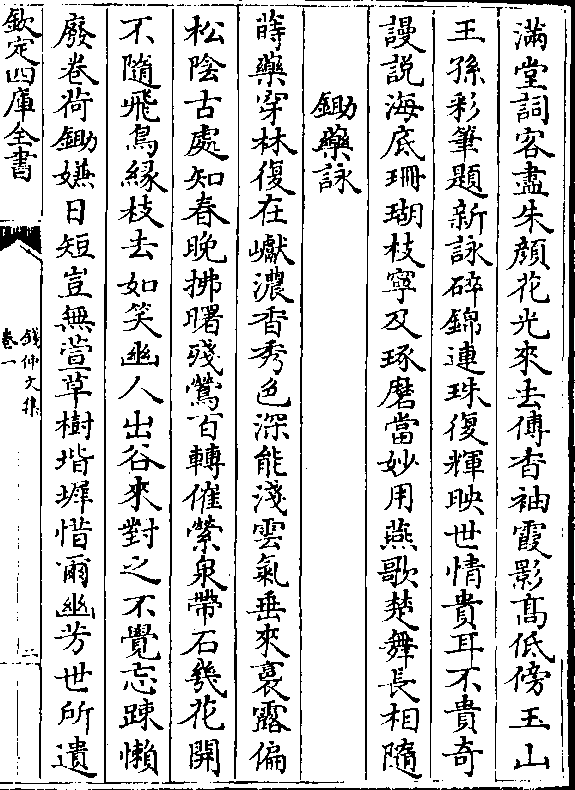 滿堂詞客盡朱顔花光來去傅香袖霞影髙低傍玉山
王孫彩筆題新詠碎錦連珠復輝映世情貴耳不貴奇
謾説海底珊瑚枝寧及琢磨當妙用燕歌楚舞長相隨
鋤藥詠
蒔藥穿林復在巘濃香秀色深能淺雲氣垂來裛露偏
松陰古處知春晚拂曙殘鶯百轉催縈泉帶石幾花開
不隨飛鳥緣枝去如笑幽人出谷來對之不覺忘踈懶
廢卷荷鋤嫌日短豈無萱草樹堦墀惜爾幽芳世所遺
欽定四庫全書
錢仲文集
卷一
二